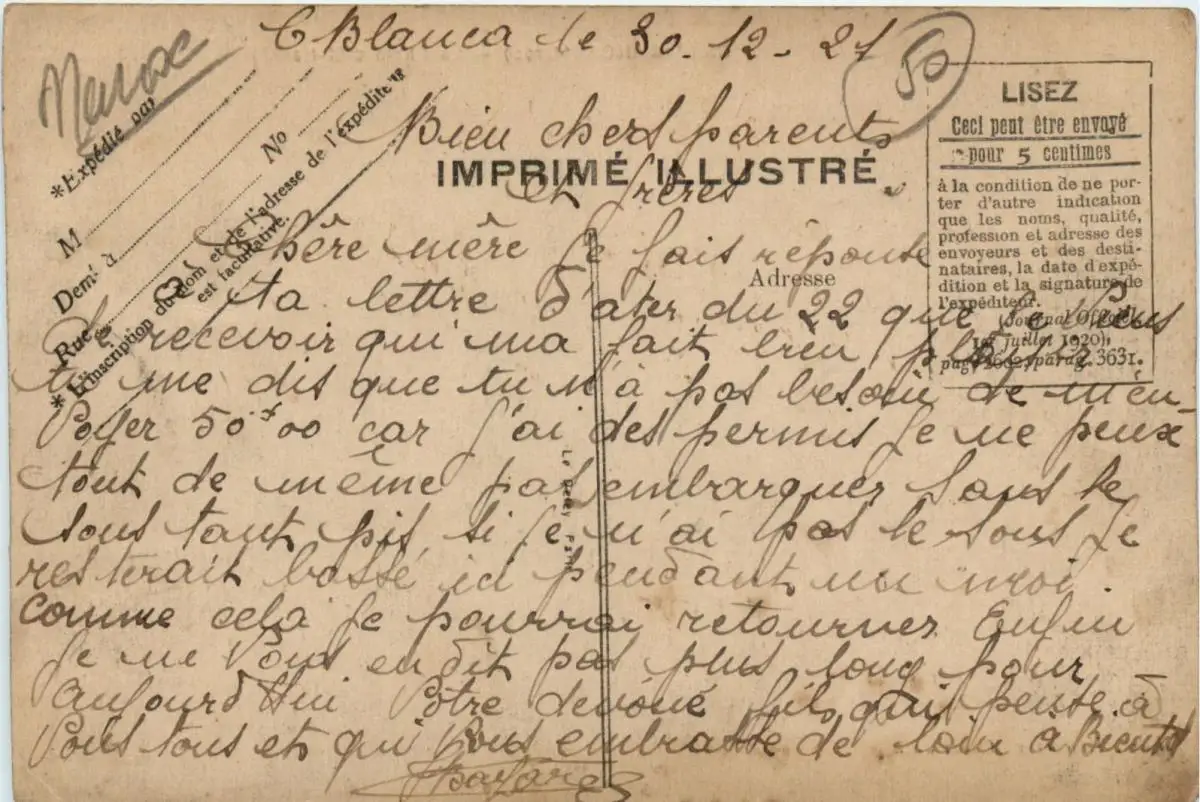 C Blanca le 30. 12 - 21
Maroc
50
Bien chers parents
et frères
IMPRIMÉ ILLUSTRÉ
*Expédié par
M
Nº
Demt à
Rue
* L'inscription du nom et de l'adresse de l'expéditeur
est facultative.
LISEZ
Ceci peut être envoyé
pour 5 centimes
à la condition de ne por-
ter d'autre indication
que les noms, qualité,
profession et adresse des
envoyeurs et des desti-
nataires, la date d'expé-
dition et la signature de
l'expéditeur.
(Journal Officiel
1er juillet 1920)
parag. 3631.
Adresse
Chère mère je fait réponse
à ta lettre dater du 22 que je viens
de recevoir qui ma fait bien plaisir
tu me dis que tu n'à pas besoin de m'en-
voyer 50 00 car j'ai des permis je ne peux
tout de même pas embarquer sans le
sous tant pis si je n'ai pas le sous je
resterait bossé ici pendant un moi.
comme cela je pourrai retourner Enfin
je ne vous en dit pas plus long pour
aujourd'hui Votre dévoué fils qui pense à
vous tous et qui vous embrasse de loin à Bientot